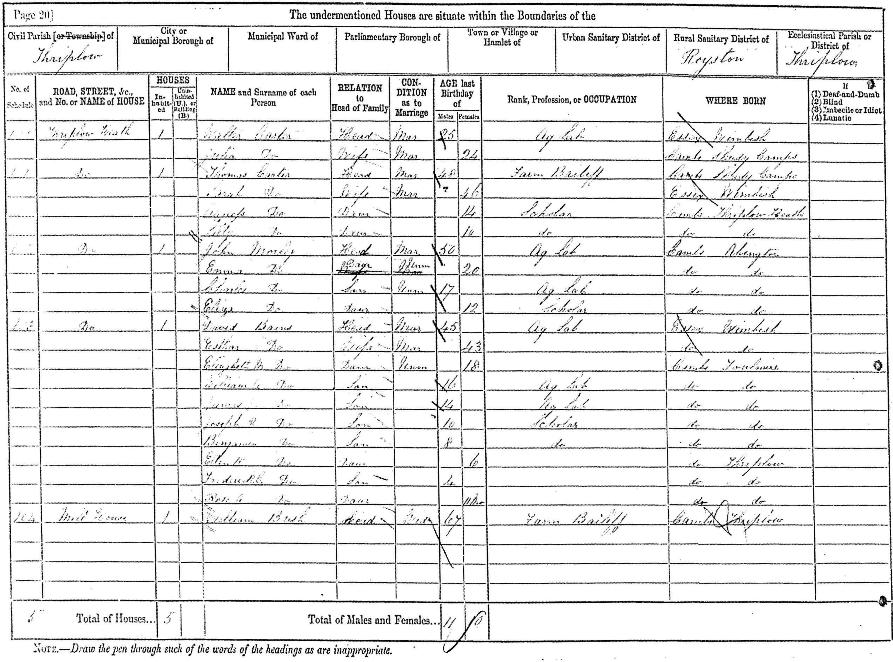 Page 20] The undermentioned Houses are situate within the Boundaries of the
Civil Parish [or Township] of
Thriplow
City or Municipal Borough of
Municipal Ward of
Parliamentary Borough of
Town or Village or Hamlet of
Urban Sanitary District of
Rural Sanitary District of
Royston
Ecclesiastical Parish or District of
Thriplow
No. of Schedule
ROAD, STREET, &c., and No. or NAME of HOUSE
HOUSES
In-habit-ed
Un-inhabited (U.), or Building (B.)
NAME and Surname of each Person
RELATION to Head of Family
CON-DITION as to Marriage
AGE last Birthday of
Males Females
Rank, Profession, or OCCUPATION
WHERE BORN
If
(1) Deaf-and-Dumb
(2) Blind
(3) Imbecile or Idiot
(4) Lunatic
Thriplow Heath 1 Walter Carter Head Mar 25 Ag Lab Essex Wimbish
Do Wife Mar 24 Cambs Shudy Camps
Do 1 Thomas Carter Head Mar 48 Farm Bailiff Cambs Shudy Camps
Sarah Do Wife Mar 46 Essex Wimbish
Do Daur 14 Scholar Cambs Thriplow Heath
Do Daur 10 do do do
Do 1 John Head Mar 50 Ag Lab Cambs Abington
Emma Do Daur Unm 20 do do
Charles Do Son Unm 17 Ag Lab do do
Eliza Do Daur 12 Scholar do do
Do 1 David Head Mar 45 Ag Lab Essex Wimbish
Esther Do Wife Mar 43 do do
Elizabeth M Do Daur Unm 18 Cambs Fowlmere
William Do Son 16 Ag Lab do do
James Do Son 14 Ag Lab do do
Joseph Do Son 10 Scholar do do
Benjamin Do Son 8 do do do
Do Daur 6 do Thriplow
Frederick Do Son do do
Rose Do Daur do do
104 House 1 William Head 67 Farm Bailiff Cambs Thriplow
5 Total of Houses... 5 Total of Males and Females... 11
NOTE.—Draw the pen through such of the words of the headings as are inappropriate.